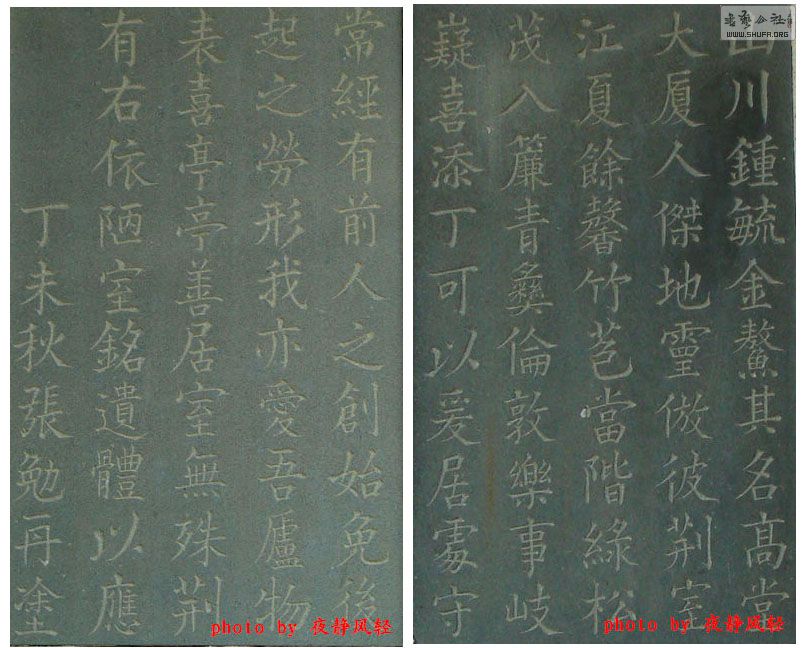 山川鍾毓金鰲其名高堂
大廈人傑地靈倣彼荆室
江夏餘馨竹苞當階綠松
茂入簾青彝倫敦樂事岐
嶷喜添丁可以爰居處守
常經有前人之創始免後
起之勞形我亦愛吾廬物
表喜亭亭善居室無殊荆
有右依陋室銘遺體以應
丁未秋張勉再塗
书艺公社
WWW.SHUFA.ORG
photo by 夜静风轻
photo by 夜静风轻